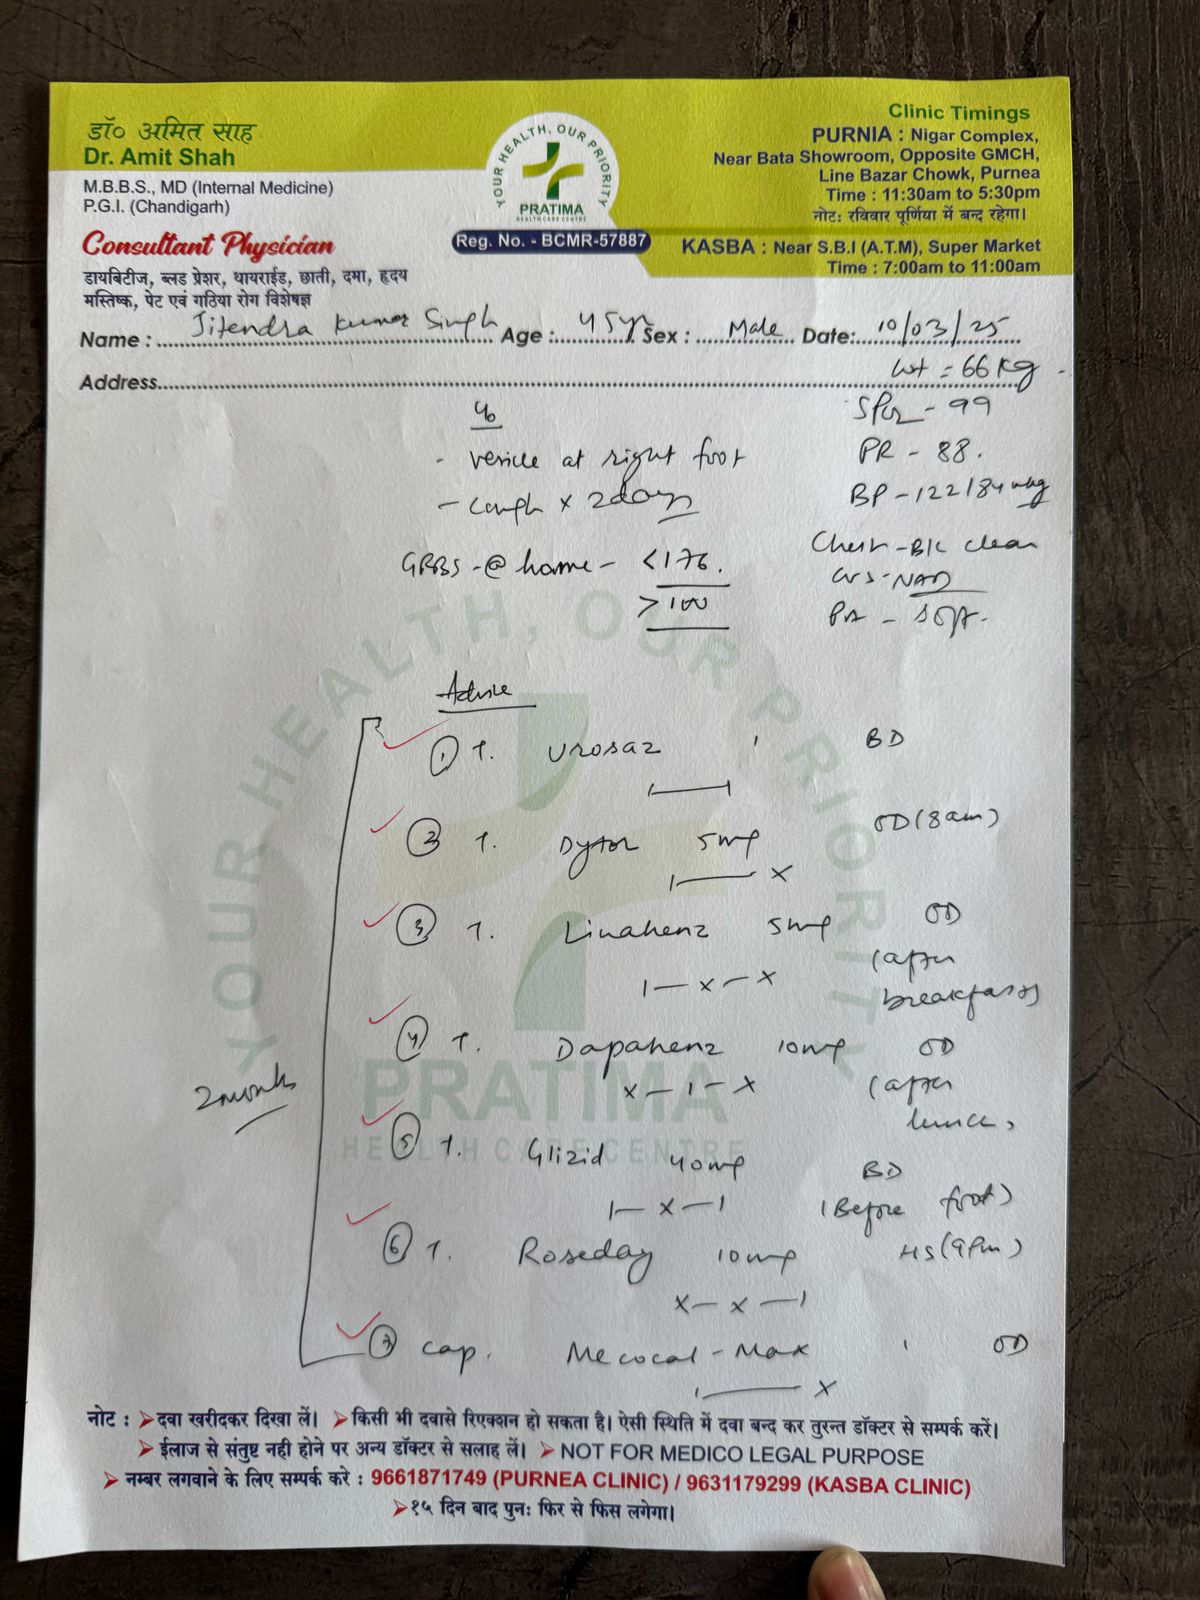 डॉ० अमित साह
Dr. Amit Shah
M.B.B.S., MD (Internal Medicine)
P.G.I. (Chandigarh)
Consultant Physician
डायबिटीज, ब्लड प्रेशर, थायराईड, छाती, दमा, हृदय
मस्तिष्क, पेट एवं गठिया रोग विशेषज्ञ
YOUR HEALTH, OUR PRIORITY
PRATIMA
HEALTH CARE CENTRE
Reg. No. - BCMR-57887
Clinic Timings
PURNIA : Nigar Complex,
Near Bata Showroom, Opposite GMCH,
Line Bazar Chowk, Purnea
Time : 11:30am to 5:30pm
नोट: रविवार पूर्णिया में बन्द रहेगा।
KASBA : Near S.B.I (A.T.M), Super Market
Time : 7:00am to 11:00am
Name : Jitendra Kumar Singh Age : 45yr Sex : Male Date: 10/03/25
Address
wt = 66 kg
SPO2 - 99
PR - 88.
BP - 122/84 mmhg
Chest - B/L clear
CVS - NAD
PA - soft.
c/o
- vesicle at right foot
- cough x 2 days
GRBS - @ home - <176.
>100
Advice
① T. Urosaz BD
② T. Dytor 5mg OD (8am)
x
③ T. Linahenz 5mg OD
(after
breakfast)
1 - x - x
④ T. Dapahenz 10mg OD
(after
lunch)
x - 1 - x
⑤ T. Glizid 40mg BD
(Before food)
1 - x - 1
⑥ T. Roseday 10mg HS (9pm)
x - x - 1
⑦ cap. Mecocal - Max OD
x
2 months
YOUR HEALTH, OUR PRIORITY
PRATIMA
HEALTH CARE CENTRE
नोट : ➤दवा खरीदकर दिखा लें। ➤किसी भी दवासे रिएक्शन हो सकता है। ऐसी स्थिति में दवा बन्द कर तुरन्त डॉक्टर से सम्पर्क करें।
➤ईलाज से संतुष्ट नही होने पर अन्य डॉक्टर से सलाह लें। ➤ NOT FOR MEDICO LEGAL PURPOSE
➤ नम्बर लगवाने के लिए सम्पर्क करे : 9661871749 (PURNEA CLINIC) / 9631179299 (KASBA CLINIC)
➤१५ दिन बाद पुनः फिर से फिस लगेगा।